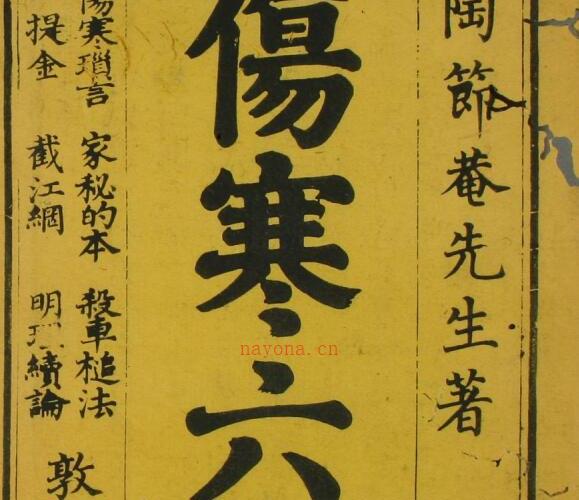 陶節菴先生著
傷寒六
傷寒瑣言 家秘的本 殺車槌法
提金 截江綱 明理續論
敦
nayona.cn